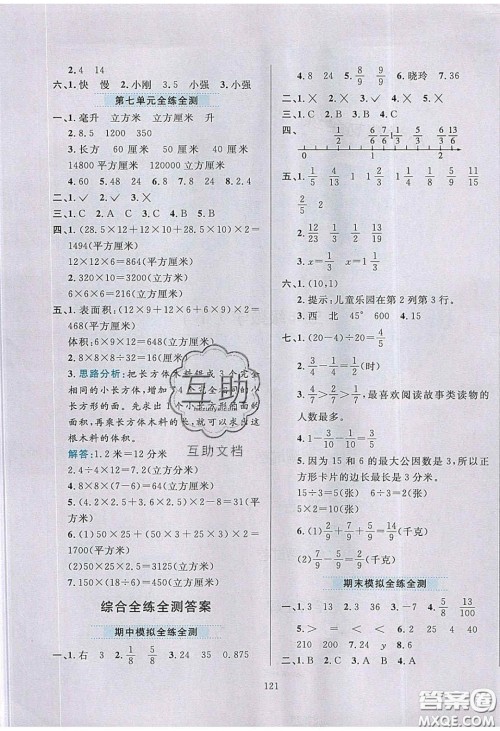 2. 4 14
六、1. 快 慢 2. 小刚 3. 5 小强 4. 小强
第七单元全练全测
一、1. 毫升 立方米 立方厘米 升
2. 8. 5 1200 2040
3. 长方 60 厘米 50 厘米 40 厘米
14800 平方厘米 120000 立方厘米
4. 60 5. 48 24 6. 24 7. 8 8. 2. 4
二、1. ✓ 2. ✓ 3. ×
三、1. C 2. A 3. C 4. B 5. B
四、1. (28. 5×12+12×10+28. 5×10)×2=
1494(平方厘米)
12×12×6=864(平方厘米)
2. 320×10=3200(立方厘米)
6×6×6=216(立方厘米)
五、1. 表面积：(12×9+12×6+9×6)×2=
468(平方厘米)
体积：12×9×6=648(立方厘米)
2. 8×8×8-32×15=32(立方厘米)
3. 思路分析：把长方体木料锯成 3 个完全
相同的小长方体，表面积增加了 4 个
小长方形的面。先求出 1 个小长方形的
面积，再乘长方体木料的长，就可以求出这
根木料的体积。
解答：1. 2米=12分米
2. 4÷4×12=7. 2(立方分米)
4. 8×8×6=384(平方厘米)
5. (4. 2×2. 5+4×2. 5)×2=41(平方
厘米)
6. (1)50×25+(50×3+25×3)×2=
1700(平方米)
(2)50×25×2. 5=3125(立方米)
7. 150×(18÷6)=450(立方厘米)
综合全练全测答案
期中模拟全练全测
一、1. 右 3 2. 1/2 5/8 3. 24 35 0. 875
4. 8 24 5. 4/9 5/9 6. 晓玲 7. 36
二、1. × 2. ✓ 3. × 4. ✓ 5. ✓
三、1. C 2. B 3. C 4. A 5. B
四、1/3 1/2 6/7 6/6 13/6
五、1. 1/5 4/13 1 1/3 1/2 3/4 1/18 1/9
2/5 2
2. 13/10 17/30 7/9 1 1/3
3. x=1/4 x=1 1/3
六、1. (10,1)
2. 提示：儿童乐园在第 2 列第 3 行。
3. 西 北 45° 600 4. 15
七、1. (20-4)÷20=4/5
2. 1/2+1/3-1/2=1/3(时)
3. 4/7>2/7>1/7 最喜欢阅读故事类读物的
人数最多。
4. 1-3/10-1/2=1/5
5. 因为 15 和 6 的最大公因数是 3，所以正
方形卡片的边长最长是 3 分米。
15÷3=5(张) 6÷3=2(张)
5×2=10(张)
6. (1)2/9+2/9+5/9=1(千克)
(2)7/9-2/9=5/9(千克)
期末模拟全练全测
一、1. 3 13 2. 36 3. -1 4. 5/8 13/100
5. > = < < 6. 20 7. 8/9
二、1. B 2. B 3. C 4. A
121
互助
互助文档
答案圈
MXQE.COM